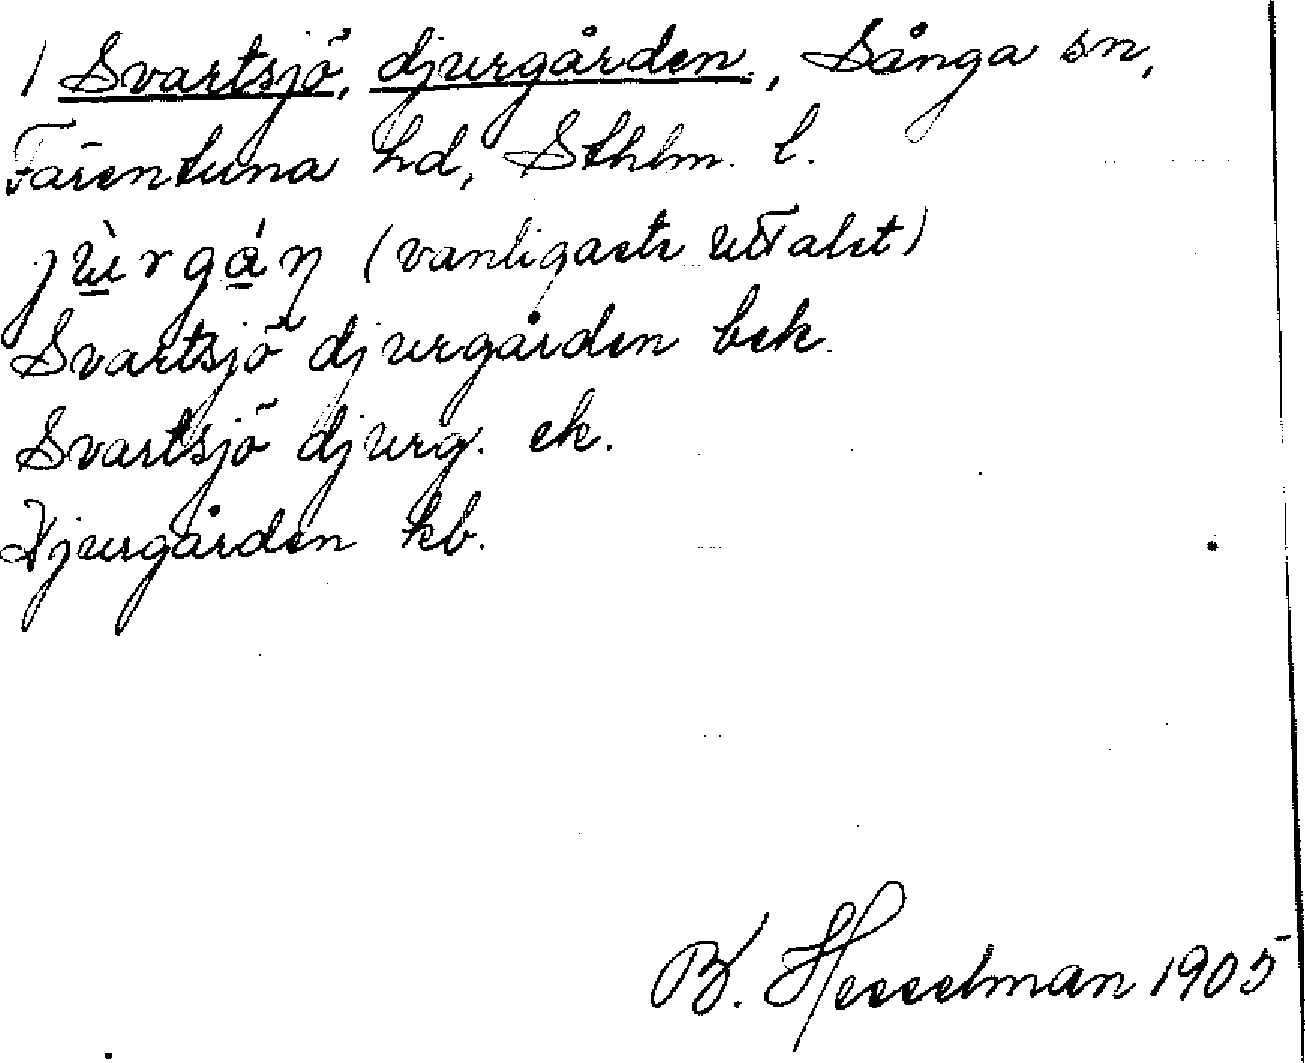 1 Svartsjö, djurgården, Sånga sn,
Färentuna hd, Sthlm. l.
jùrgáŋ (vanligaste uttalet)
Svartsjö djurgården bek.
Svartsjö djurg. ek.
Djurgården kb.
B. Hesselman 1905